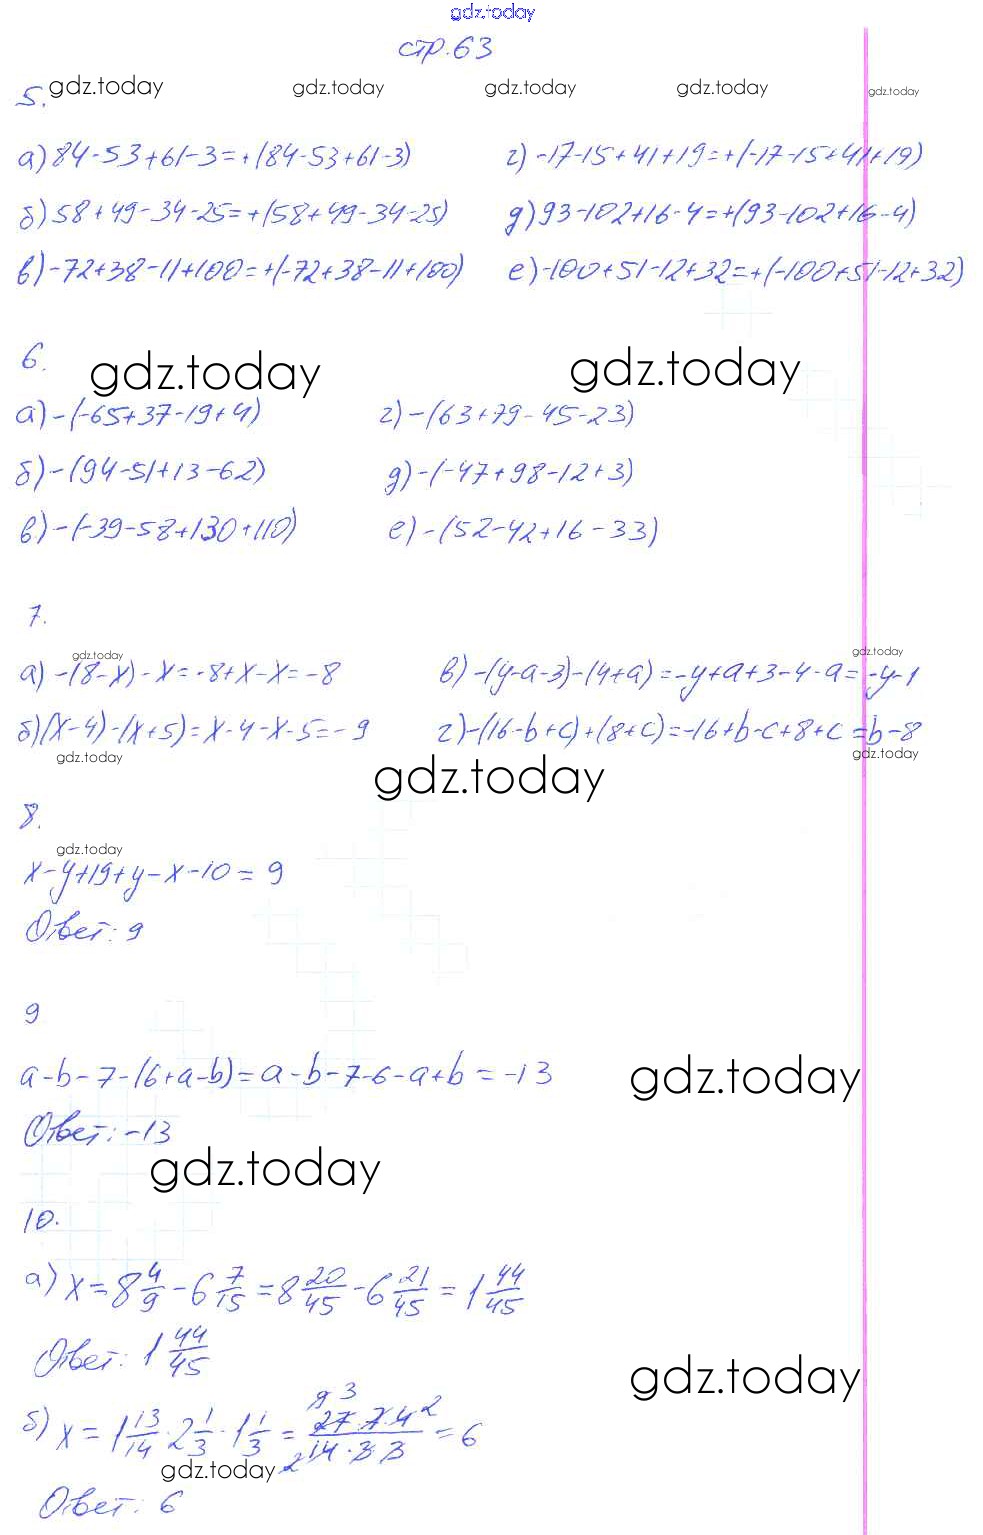 gdz.today
стр.63
5. gdz.today gdz.today gdz.today gdz.today gdz.today
а) 84-53+61-3=+(84-53+61-3) г) -17-15+41+19=+(-17-15+41+19)
б) 58+49-34-25=+(58+49-34-25) д) 93-102+16-4=+(93-102+16-4)
в) -72+38-11+100=+(-72+38-11+100) е) -100+51-12+32=+(-100+51-12+32)
6. gdz.today gdz.today
а) -(-65+37-19+4) г) -(63+79-45-23)
б) -(94-51+13-62) д) -(-47+98-12+3)
в) -(-39-58+130+110) е) -(52-42+16-33)
7.
gdz.today gdz.today
а) -(8-x)-x=-8+x-x=-8 в) -(y-a-3)-(4+a)=-y+a+3-4-a=-y-1
б) (x-4)-(x+5)=x-4-x-5=-9 г) -(16-b+c)+(8+c)=-16+b-c+8+c=b-8
gdz.today gdz.today gdz.today
8.
gdz.today
x-y+19+y-x-10=9
Ответ: 9
9
a-b-7-(6+a-b)=a-b-7-6-a+b=-13 gdz.today
Ответ: -13
gdz.today
10.
а) x=8 4/9 - 6 7/15 = 8 20/45 - 6 21/45 = 1 44/45
Ответ: 1 44/45 gdz.today
б) x = 1 13/14 · 2 1/3 · 1 1/3 = 27·7·4/14·3·3 = 6
gdz.today
Ответ: 6